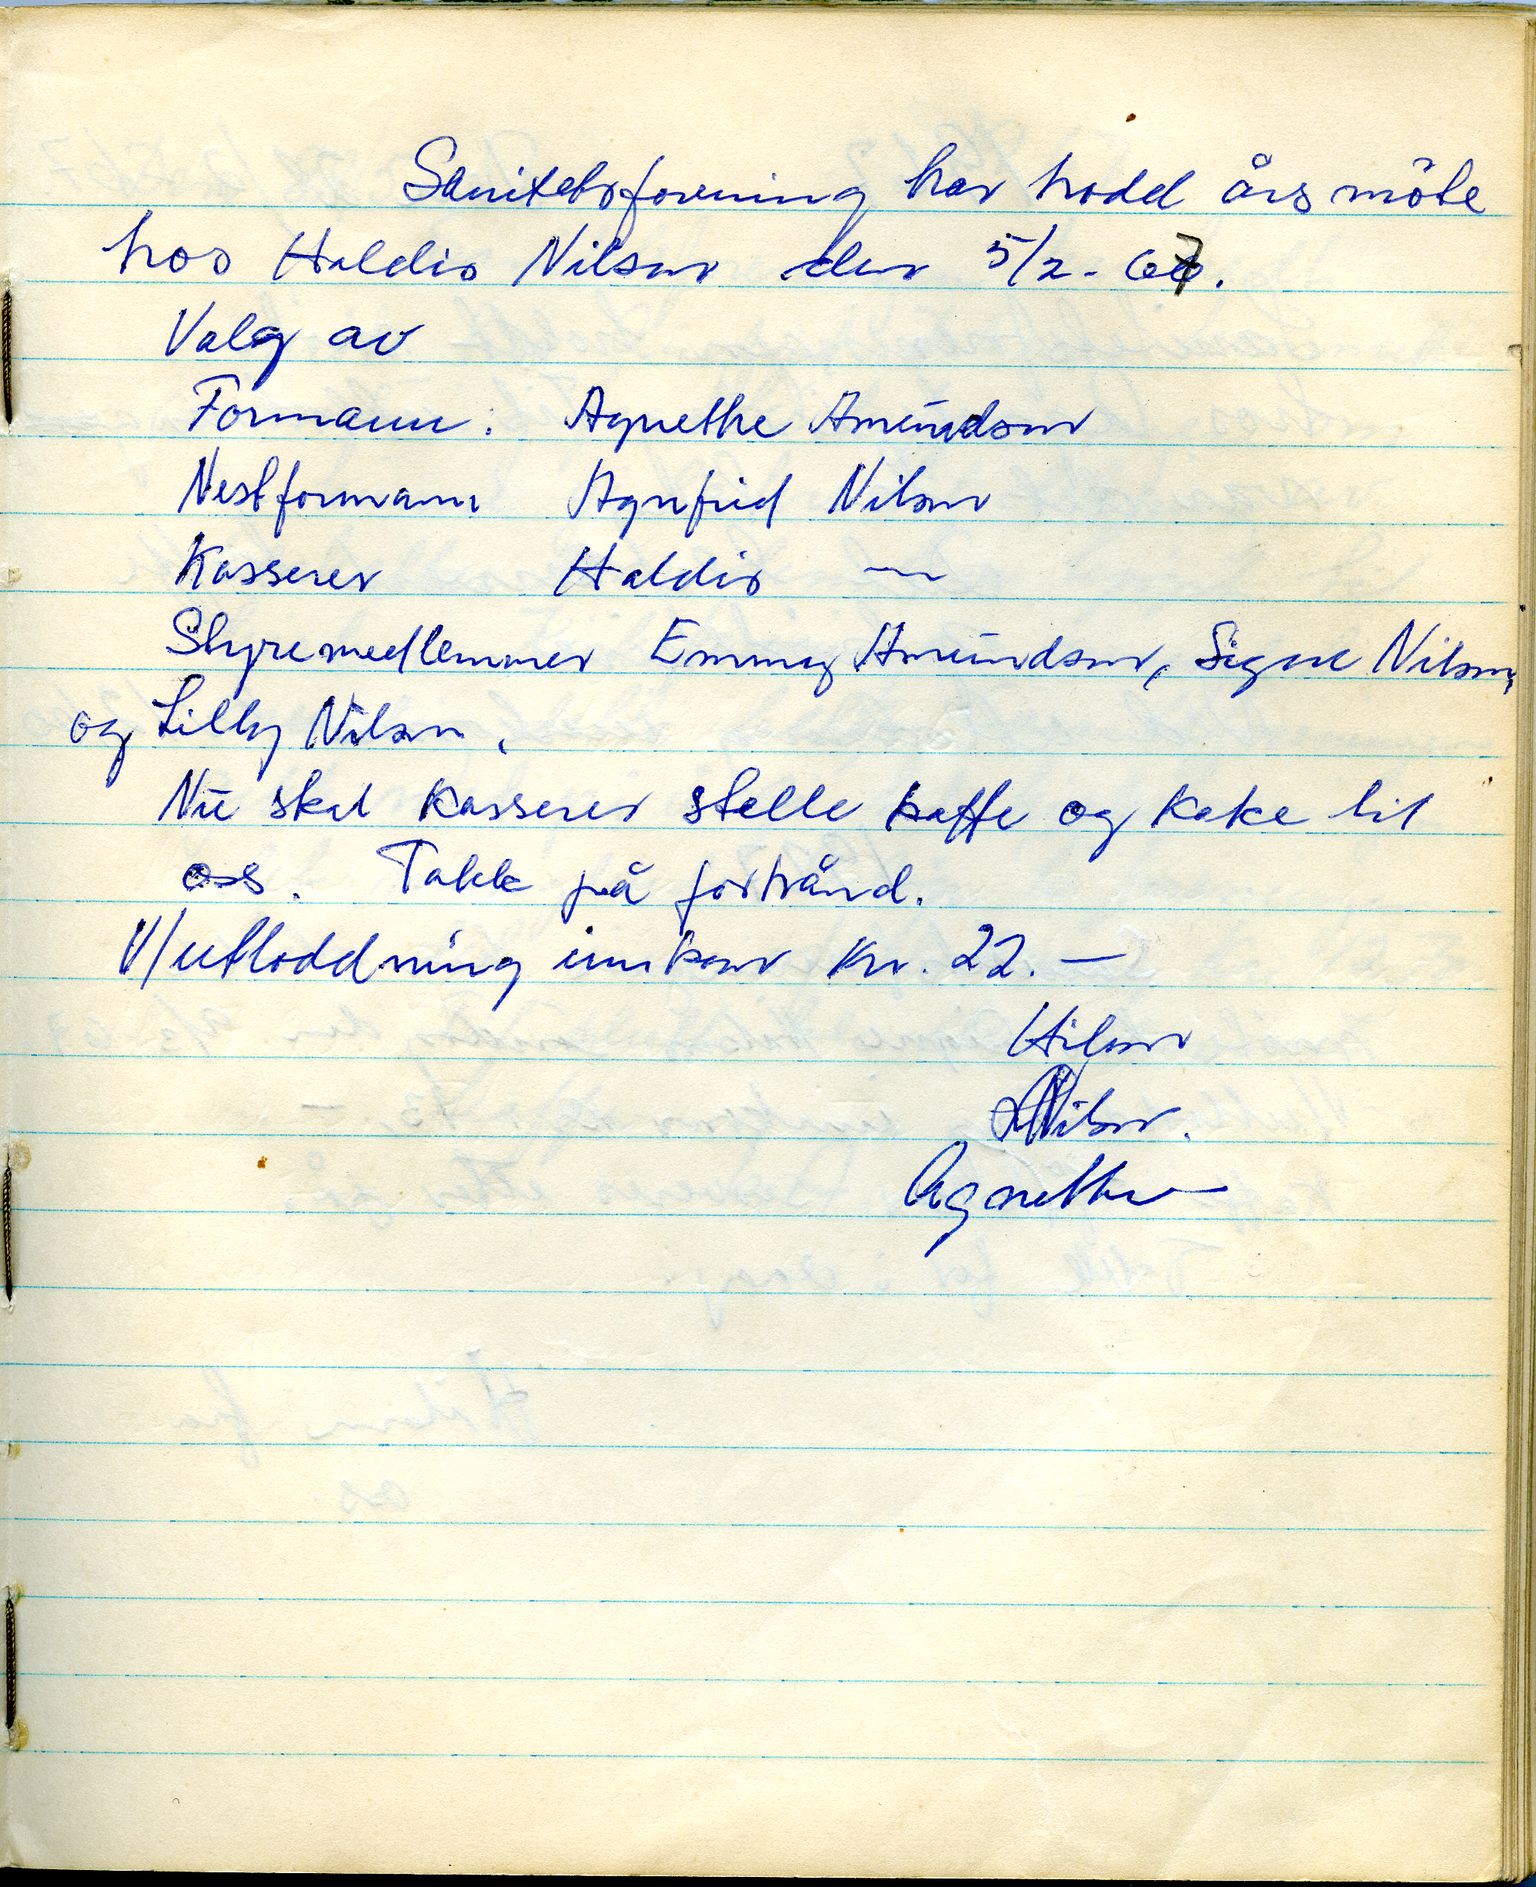 Sanitetsforening har hodd årsmöte
hos Haldis Nilsen den 5/2-67.
Valg av
Formann: Agnethe Amundsen
Nestformann Agnfrid Nilsen
Kasserer Haldis —
Styremedlemmer Emmy Amundsen, Signe Nilsen,
og Lilly Nilsen.
Nu skal kasserer stelle kaffe og kake til
oss. Takk på forhånd.
V/utloddning innkom kr. 22.—
Hilsen
LNilsen.
Agnethe